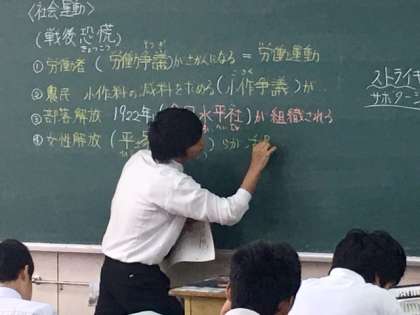 〈社会運動〉
(戦後恐慌)
きょうこう
①労働者(労働争議)がさかんになる = 労働運動
そうぎ
②農民 小作料の減料をもとめる(小作争議)が
こさく
③部落解放 1922年 水平社)が組織される
④女性解放(平 らが
ストライ
サボター